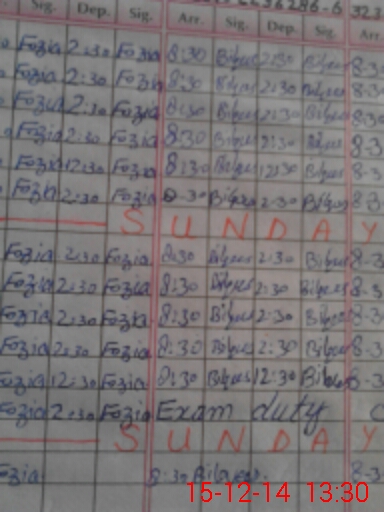 Sig. Dep. Sig. Arr. Sig. Dep. Sig. Arr.
Fozia 2:30 Fozia 8:30 Bilques 2:30 Bilques 8-3
Fozia 2:30 Fozia 8:30 Bilques 2:30 Bilques 8-3
Fozia 2:30 Fozia 8:30 Bilques 2:30 Bilques 8-3
Fozia 2:30 Fozia 8:30 Bilques 2:30 Bilques 8-3
Fozia 12:30 Fozia 8:30 Bilques 12:30 Bilques 8-3
Fozia 2:30 Fozia 8:30 Bilques 2:30 Bilques 8-3
SUNDAY
Fozia 2:30 Fozia 8:30 Bilques 2:30 Bilques 8-3
Fozia 2:30 Fozia 8:30 Bilques 2:30 Bilques 8-3
Fozia 2:30 Fozia 8:30 Bilques 2:30 Bilques 8-3
Fozia 2:30 Fozia 8:30 Bilques 2:30 Bilques 8-3
Fozia 12:30 Fozia 8:30 Bilques 12:30 Bilques 8-3
Fozia 2:30 Fozia Exam duty
SUNDAY
Fozia 8:30 Bilques 8-3
15-12-14 13:30